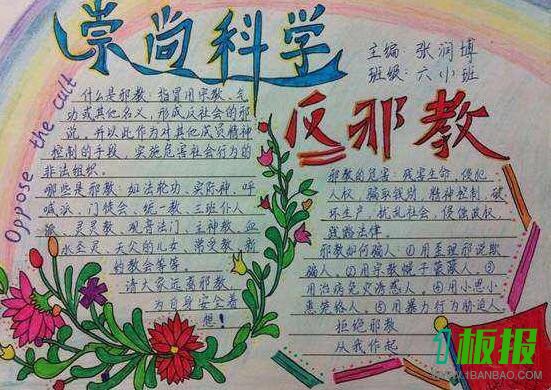 崇尚科学
主编 张润博
班级: 六(小)班
Oppose the cult
什么是邪教: 指冒用宗教、气
功或其他名义, 形成反社会的邪
说, 并以此作为对其他成员精神
控制的手段, 实施危害社会行为的
非法组织。
哪些是邪教: 如法轮功、实际神、呼
喊派、门徒会、统一教、三班仆人
派、灵灵教、观音法门、主神教、血
水圣灵、天父的儿女、常受教、新
的教会等等。
请大家远离邪教,
为自身安全着
想!
反邪教
邪教的危害: 残害生命、侵犯
人权、骗取钱财、精神控制、破
坏生产、扰乱社会、侵蚀政权
法律
邪教如何骗人: ①用歪理邪说欺
骗人、②用宗教幌子蒙蔽人、③
用治病免灾诱惑人、④用小恩小
惠笼络人、⑤用暴力行为胁迫人
拒绝邪教
从我作起
1板报
WWW.1BANBAO.COM